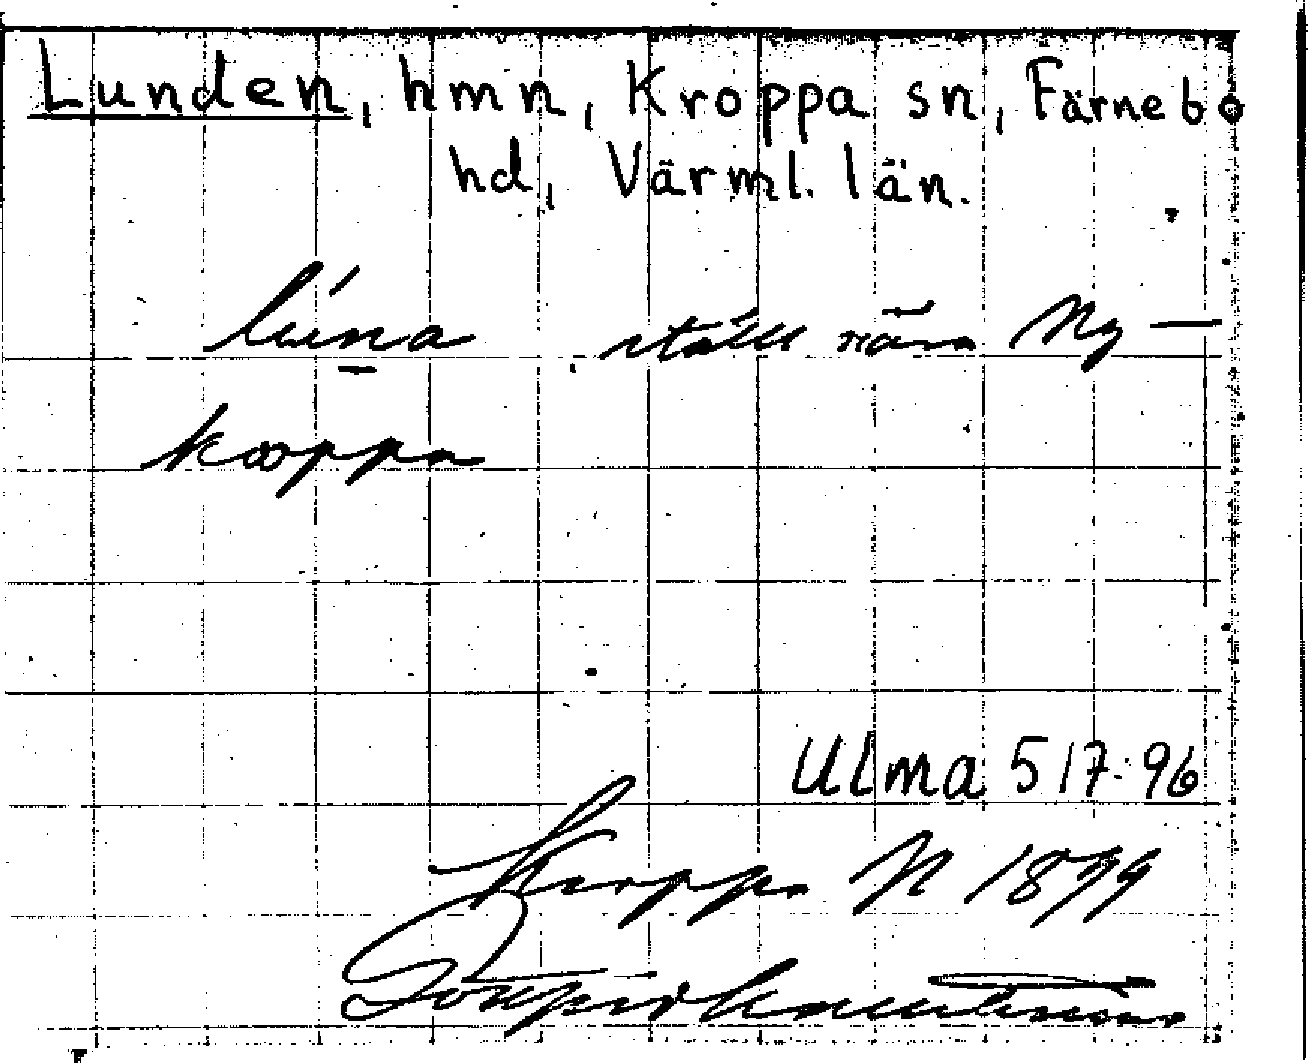 Lunden, hmn, Kroppa sn, Färnebo
hd, Värml. län.
ställe nära Ny-
kroppa
Ulma 517:96
Kroppa N 1879